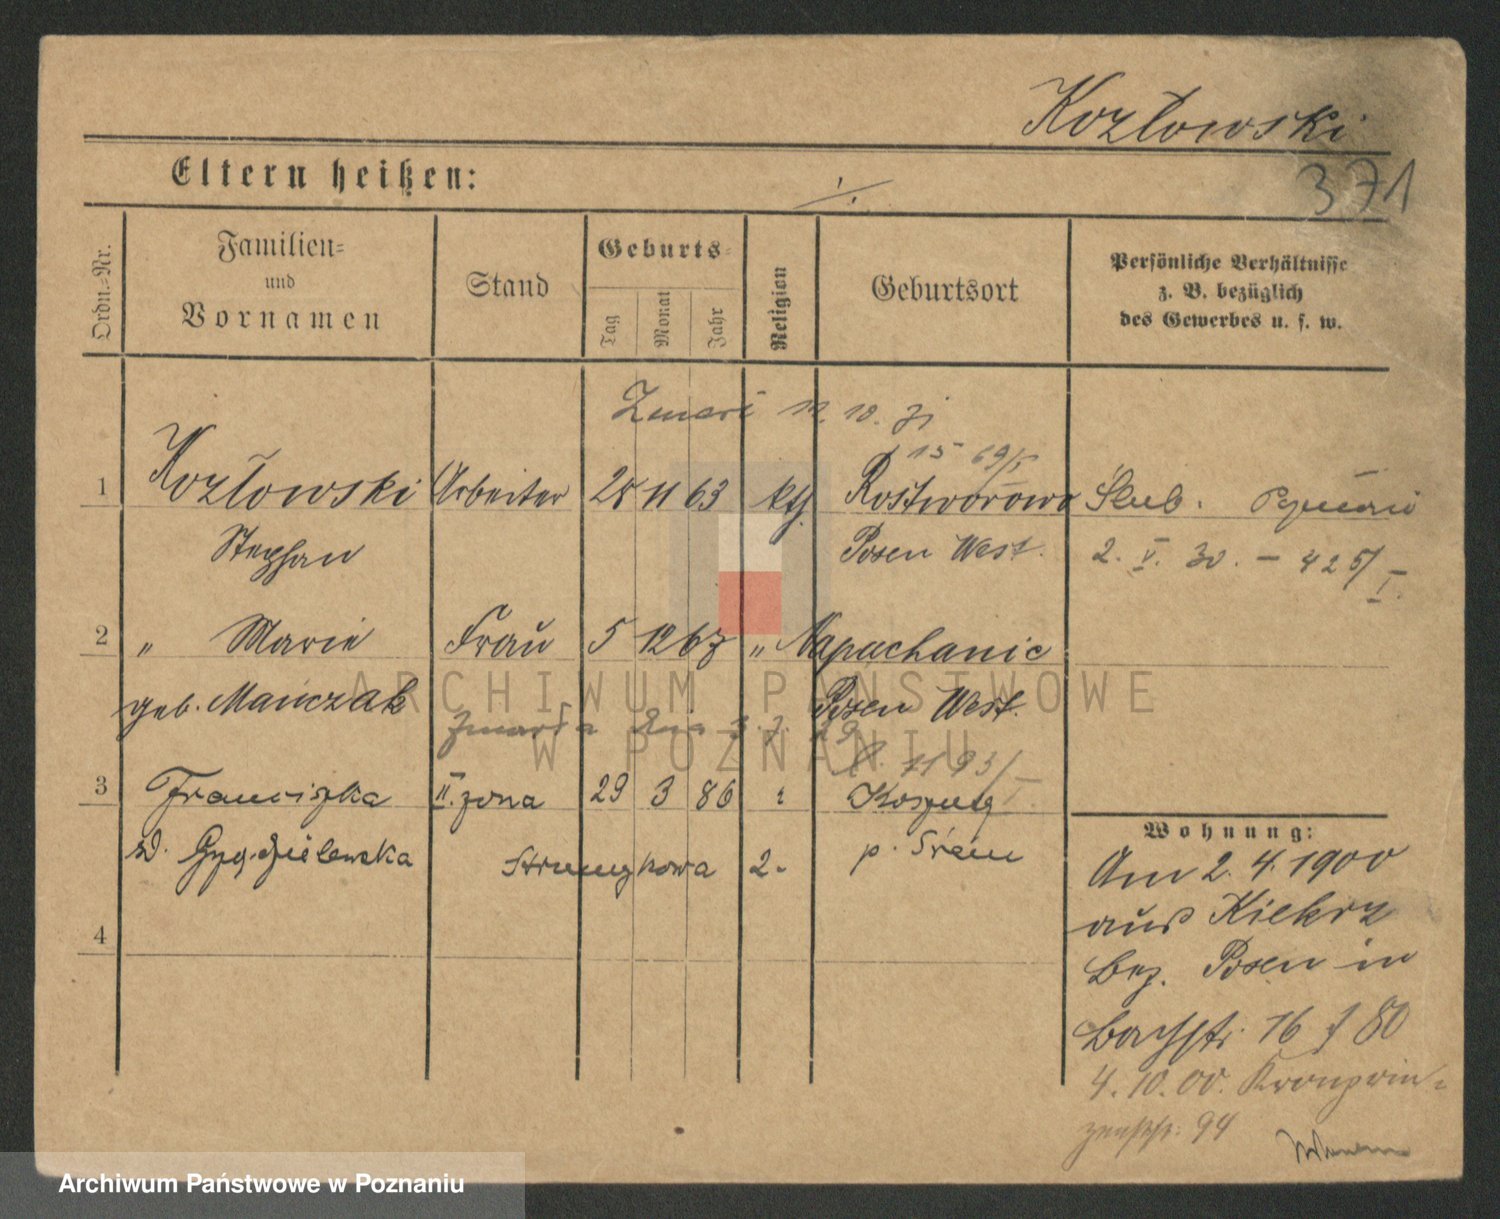 Kozłowski
Eltern heißen:
371
Ordn.-Nr.
Familien-
und
Vornamen
Stand
Geburts-
Tag
Monat
Jahr
Religion
Geburtsort
Persönliche Verhältnisse
z. B. bezüglich
des Gewerbes u. s. w.
10.
15 69/I
1 Kozłowski Arbeiter 28 11 63 kth. Rostworowo Ślub.
Stephan Posen West. 2. V. 30. - 425/I.
2 " Marie Frau 5 12 67 " Napachanie
geb. Mańczak Posen West.
Zmarła dnia 3.7. 29
1193/I
3 Franciszka II. żona 29 3 86
p. Śrem
Strumykowa 2.
4
Wohnung:
Am 2. 4. 1900
aus Kiekrz
Bez. Posen in
Bachstr. 16 f 80
4. 10. 00. Kronprin-
zenstr. 94
ARCHIWUM PAŃSTWOWE
W POZNANIU
Archiwum Państwowe w Poznaniu